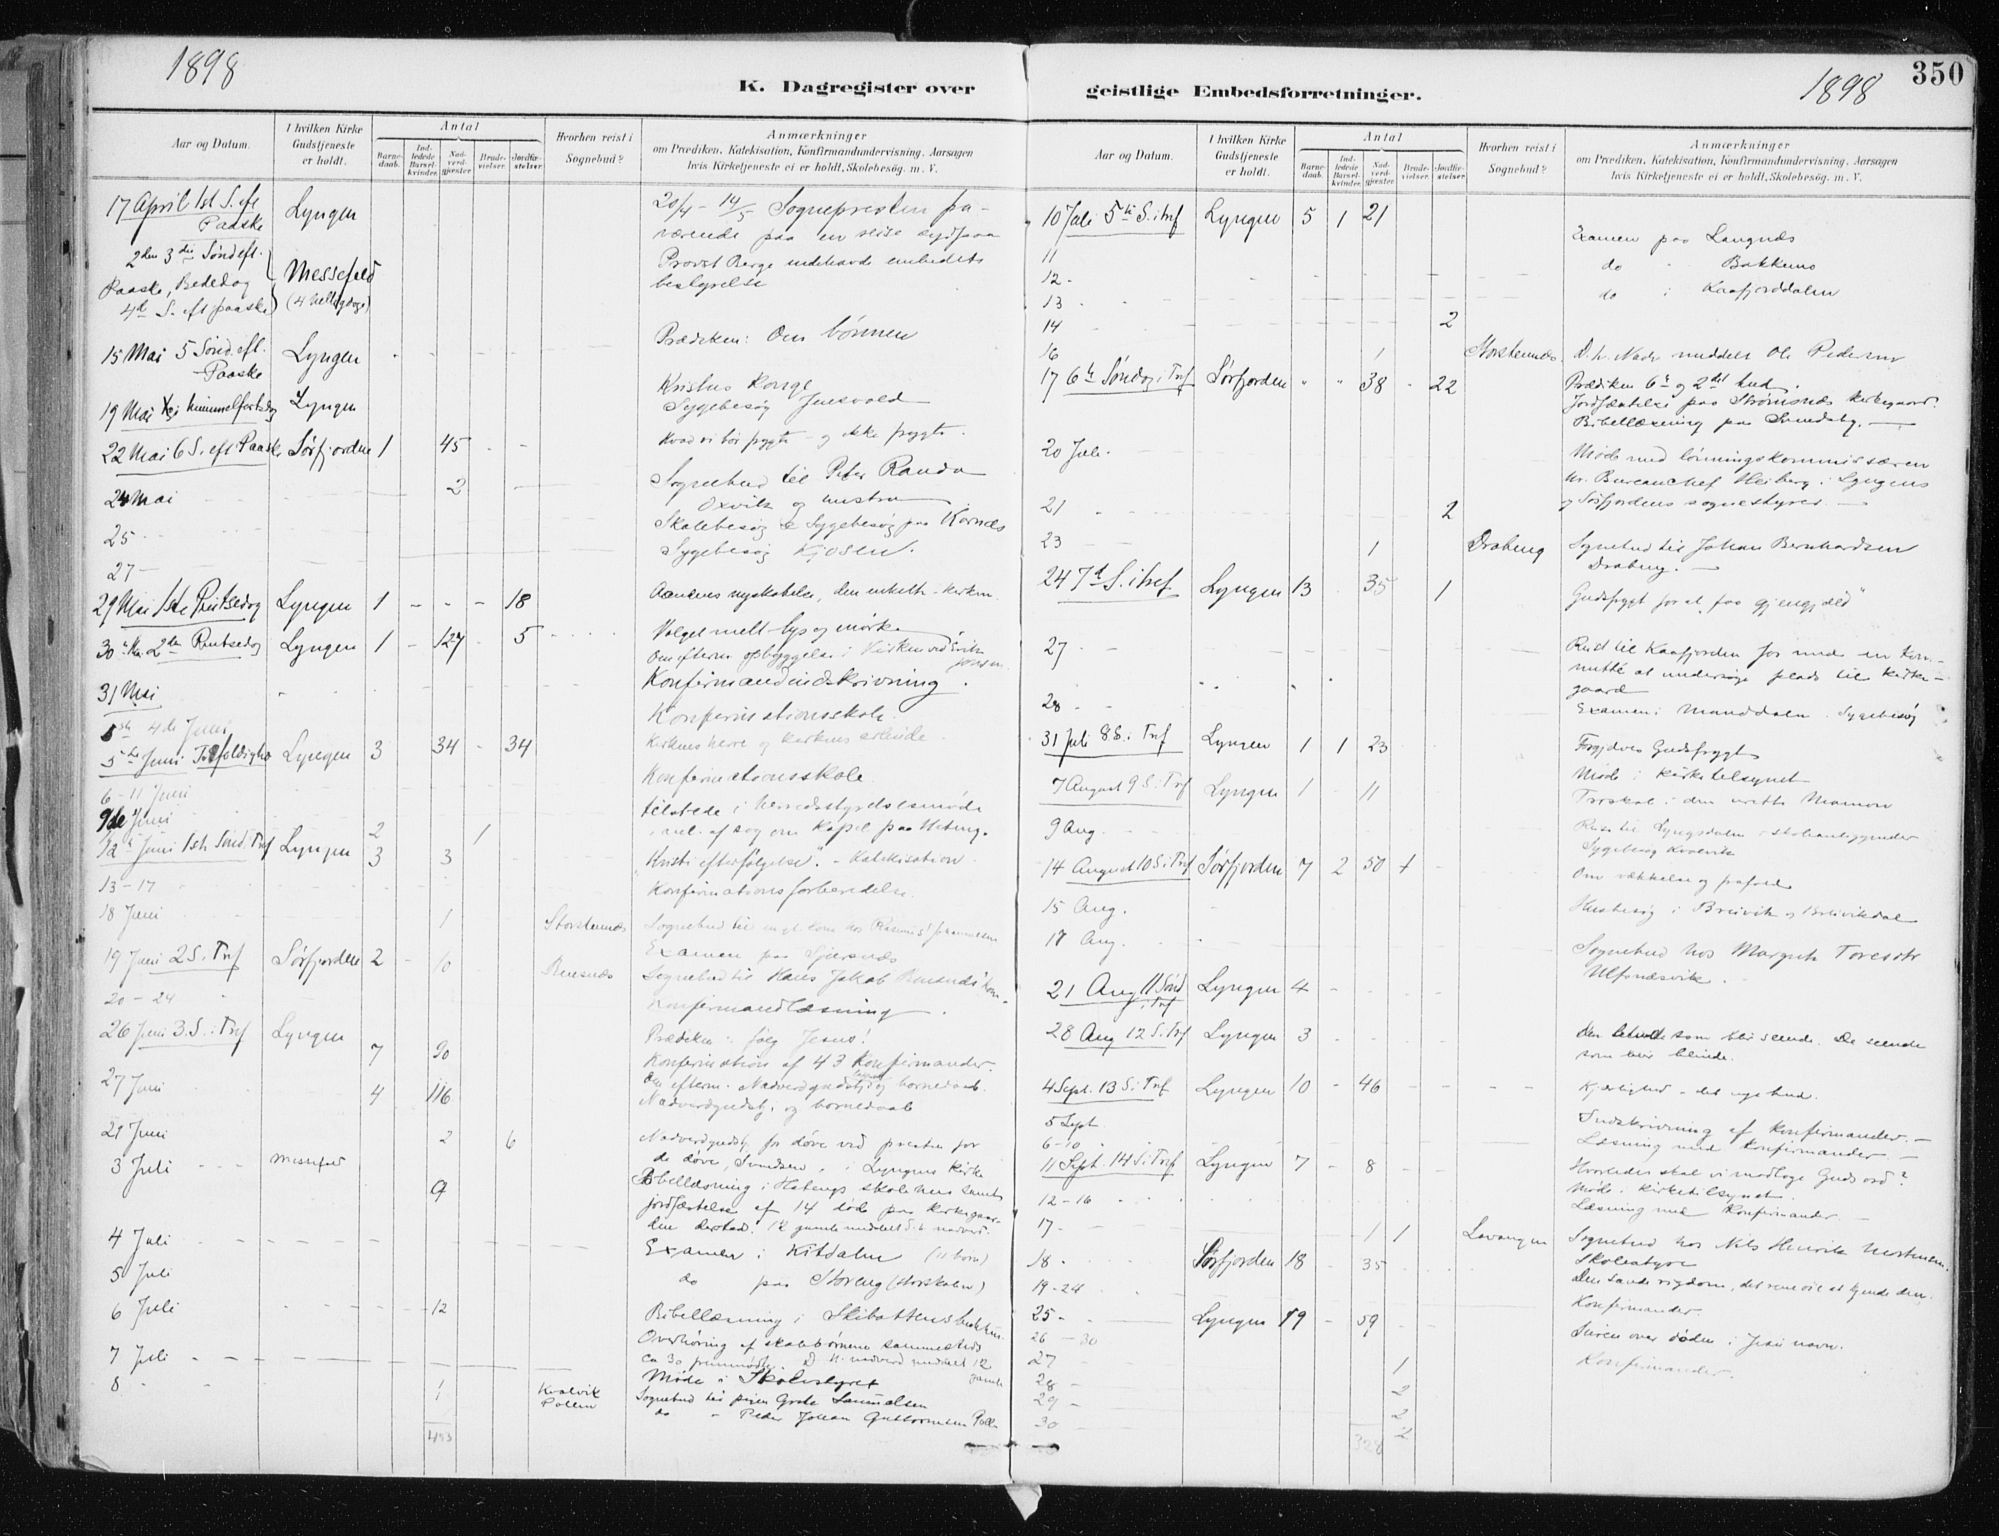 1898
K. Dagregister over
Aar og Datum.
I hvilken Kirke Gudstjeneste er holdt.
Antal
Barnedaab.
Indledede Barselkvinder.
Nadverdgjester
Brudevielser
Jordfæstelser
Hvorhen reist i Sognebud?
Anmærkninger
om Prædiken, Katekisation, Konfirmandundervisning, Aarsagen
hvis Kirketjeneste ei er holdt, Skolebesøg m. V.
17 April 1st S. ef Paaske Lyngen 20/4 - 14/5 Sognepresten fra-
værende paa en reise sydpaa
2den 3die Søndefl. Paaske, Bededag 4de S. eft paaske Messefald (4 helligdage) Provst Berge udehavde embedets
bestyrelse
15 Mai 5 Sønd. efl. Paaske Lyngen Prædiken: Om bønnen
19 Mai Kri himmelfartsdag Lyngen Kristus Konge
Sygebesøg Jensvold
22 Mai 6 S. eft Paaske Sørfjorden 1 45 Hvad vi bør frygte og ikke frygte.
24 Mai 2 Sognebud til Peter Randa
Oxvik og hustru
25 Skolebesøg & Sygebesøg paa Kornes
27 Sygebesøg Kjosen.
29 Mai 1ste Pintsedag Lyngen 1 18 Aandens nyskabelse, den enkelte - kirken.
30 Mai 2den Pintsedag Lyngen 1 127 5 Valget mell lys og mørke
Om efterm opbyggelse i Kirken ved Erik Jonsen.
31 Mai Konfirmandindskrivning.
4de Juni Konfirmationsskole.
5te Juni Trefoldigh Lyngen 3 34 34 Kirkens herre og kirkens ærinde.
6-11 Juni Konfirmationsskole.
9de Juni tilstede i herredsstyrelsesmøde
anl. af sag om kapel paa
12te Juni 1ste Sønd. Tref Lyngen 2 3 3 1 "Kristi efterfølgelse". - Katekisation
13-17 Konfirmationsforberedelse.
18 Juni 1 Storstennæs Sognebud til
Examen paa
19 Juni 2 S. Tref Sørfjorden 2 10 Rensnæs Sognebud til Hans Jakob
20-24 Konfirmandlæsning
26 Juni 3. S. i Tref Lyngen 7 90 Prædiken: følg Jesus!
Konfirmation af 43 Konfirmander.
Om efterm. Nadverdgudstj og barnedaab.
27 Juni 4 116 Nadverdgudstj. og barnedaab
21 Juni 2 6 Nadverdgudstj. for døve ved presten for
de døve, Svendsen, i Lyngens Kirke
3 Juli Messefald 9 Bibellæsning i skolehus samt
jordfæstelse af 14 døde paa kirkegaar-
den dersted.
4 Juli Examen i Kitdalen (11 børn)
5 Juli do paa Storeng (storskolen)
6 Juli 12 Bibellæsning i Skibottens bedehus
Overhøring af skolebørnene sammesteds
7 Juli ca 30 fremmødte. D. H. nadverd meddelt 12 gamle
Møde i Skolestyret
8 1 1 Kvalvik Pollen Sognebud til pigen Grete Samuelsen
do " Peder Johan Guttormsen Pollen
493
350
1898
geistlige Embedsforretninger.
Aar og Datum.
I hvilken Kirke Gudstjeneste er holdt.
Antal
Barnedaab.
Indledede Barselkvinder.
Nadverdgjester
Brudevielser.
Jordfæstelser.
Hvorhen reist i Sognebud?
Anmærkninger
om Prædiken, Katekisation, Konfirmandundervisning, Aarsagen
hvis Kirketjeneste ei er holdt, Skolebesøg m. V.
10 Juli 5te S. i tref Lyngen 5 1 21
11 Examen paa Langnæs
12. do " Bakkemo
13 do i Kaafjorddalen
14 2
16 1 Storstennæs D. h. Nadv meddelt Ole Pedersen
17 6te Søndag i Tref Sørfjorden " " 38 22 Prædiken 6te og 2det bud.
Jordfæstelse paa Strømsnæs kirkegaard.
Bibellæsning paa Svendsby.
20 Juli. Møde med lønningskommissæren
Hr. Bureauchef Heiberg i Lyngens
og Sørfjordens sognestyrer.
21 2
23 1 Draberg Sognebud til Johan Bernhardsen
Draberg.
24 7de S. i tref Lyngen 13 35 1 Gudsfrygt for at faa gjengjæld"
27 Reist til Kaafjorden for med en kom-
mitté at undersøge plads til kirke-
gaard
28 Examen i Manddalen. Sygebesøg
31 Juli 8 S. i Tref Lyngen 1 1 23 Gudsfrygt
Møde i kirketilsynet
7 August 9 S. i Tref Lyngen 1 11 Troskab i den urette Mamon
9 Aug. Reise til Lyngsdalen
Sygebesøg Kvalvik
14 August 10 S. i Tref Sørfjorden 7 2 50 1 Om vækkelse og frafald
15 Aug. Husbesøg i Breivik og Breivikdal
17 Aug. Sognebud hos Margrete
Ulfsnæsvik.
21 Aug 11 Sønd i Tref Lyngen 4
28 Aug 12 S. Tref Lyngen 3 Den blinde som blir seende. De seende
som blir blinde.
4 Sept. 13 S. i Tref Lyngen 10 46 Kjærlighed - det nye bud.
5 Sept Indskrivning af Konfirmander.
6-10 Læsning med Konfirmander
11 Sept. 14 S. i Tref Lyngen 7 8 Hvorledes skal vi modtage Guds ord?
Møde i kirketilsynet.
12-16 Læsning med Konfirmander.
17 1 1 Lavangen Sognebud hos Nils Henrik Mortensen.
Skolestyre
18 Sørfjorden 18 35 Den sande rigdom, det rene øie at kjende den.
19-24 Konfirmander.
25 Lyngen 19 59 Seiren over døden i Jesu navn.
26-30 Konfirmander.
27 1
28 2
29 2
30 2
328